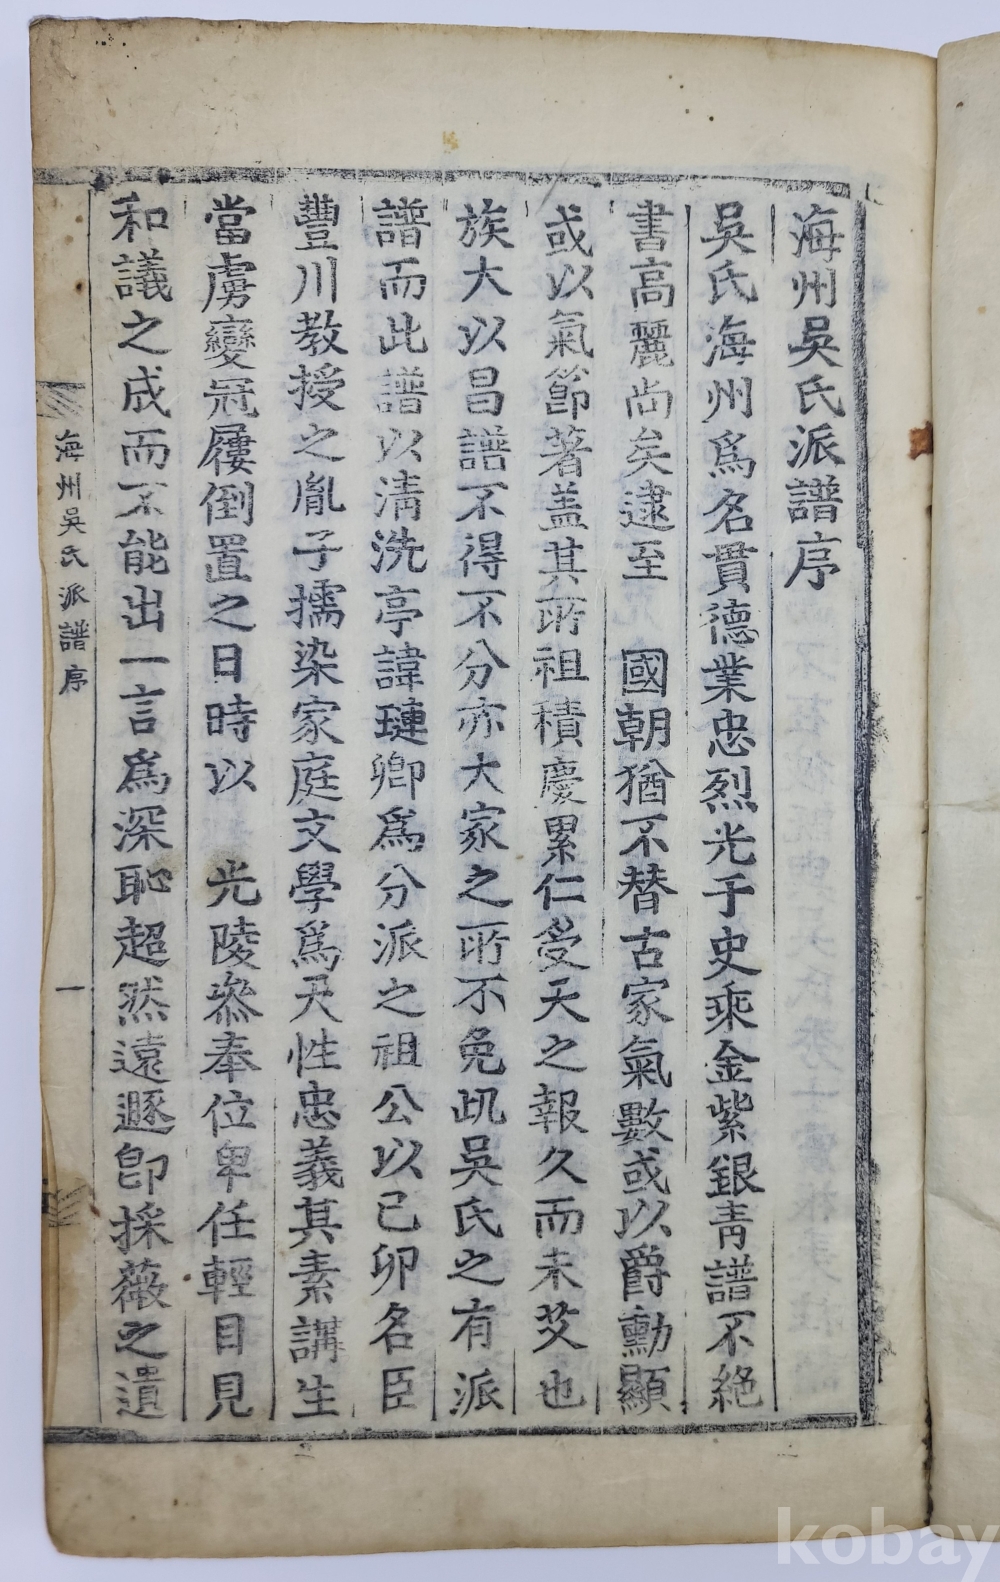 海州吳氏派譜序
吳氏海州爲名貫德業忠烈光于史乘金紫銀靑譜不絶
書高麗尙矣逮至 國朝猶不替古家氣數或以爵勳顯
或以氣節著盖其所祖積慶累仁受天之報久而未艾也
族大以昌譜不得不分亦大家之所不免此吳氏之有派
譜而此譜以淸洗亭諱璉卿爲分派之祖公以己卯名臣
豐川敎授之胤子擩染家庭文學爲天性忠義其素講生
當虜變冠屨倒置之日時以 光陵叅奉位卑任輕目見
和議之成而不能出一言爲深恥超然遠遯卽採薇之遺
海州吳氏派譜序 一
kobay